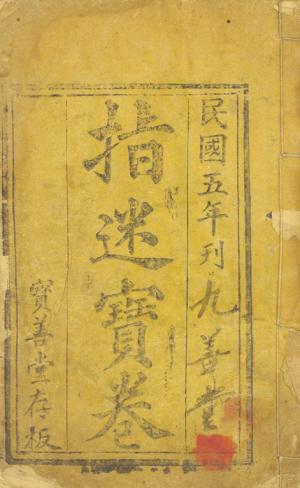 民國五年刊九善堂
指迷寶卷
寶善堂存板